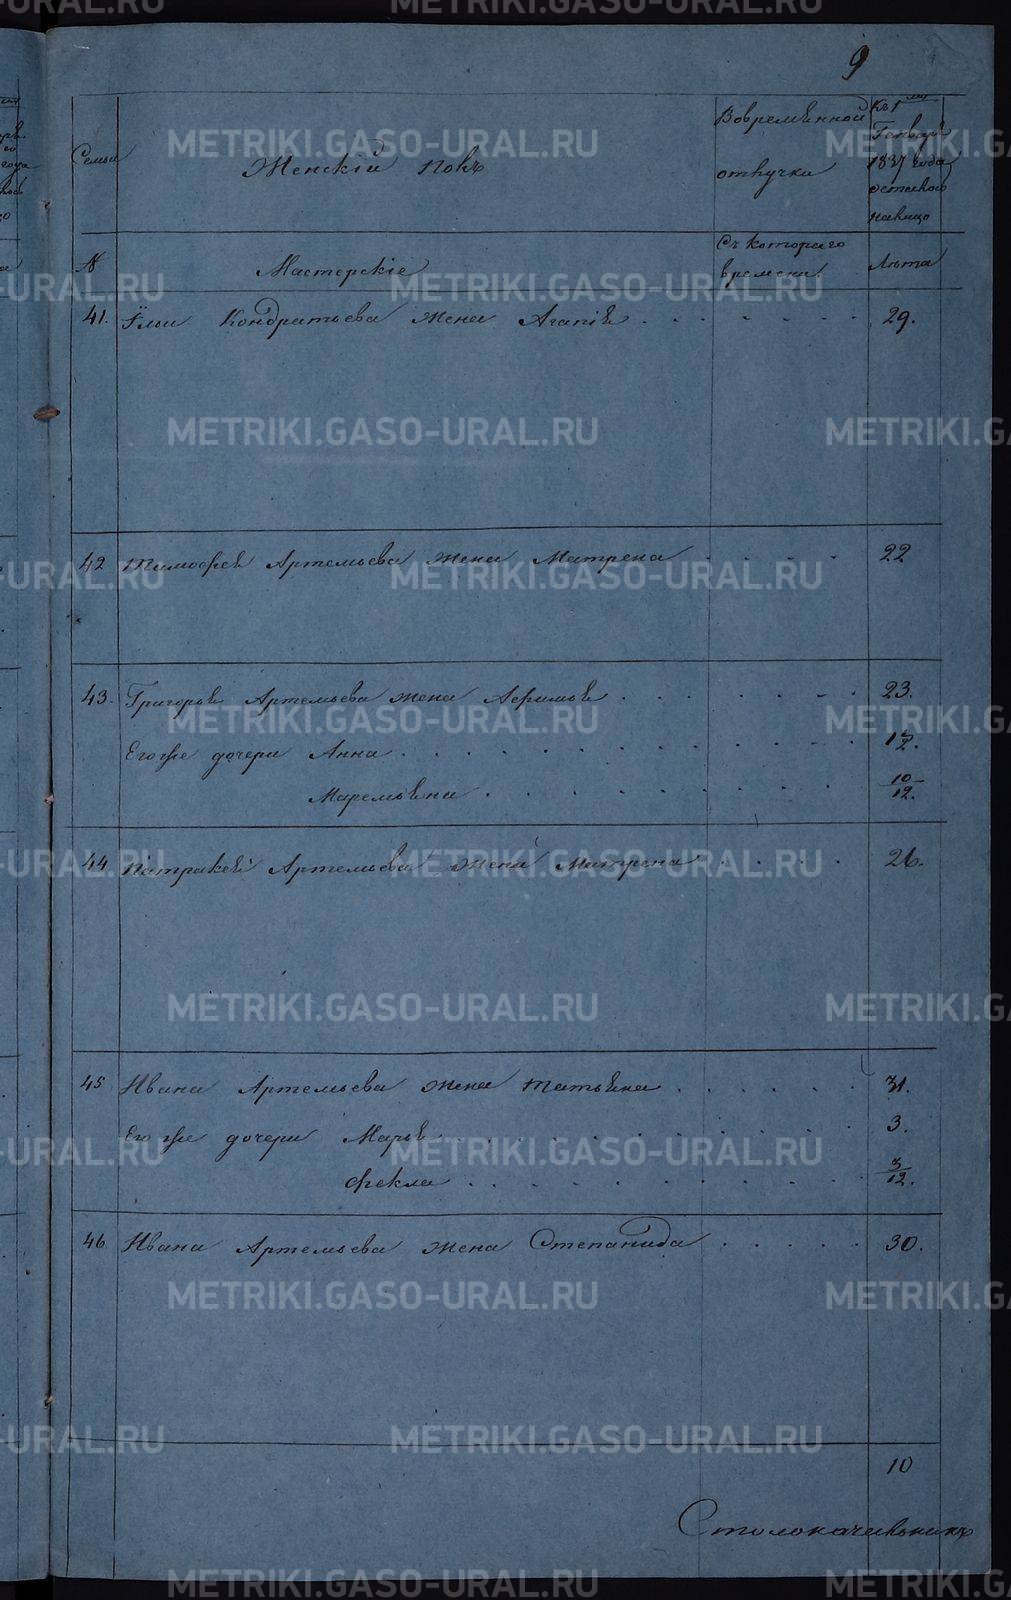 9
Семьи
Женскій полъ
Вовременной отлучки
Къ 1му Генваря 1837 года остаёлось налицо
№
Мастерскіе
Съ котораго времени.
Лѣта
41. Ильи Кондратьева жена Агапія 29.
42 Тимофея Артемьева жена Матрена 22
43. Григорья Артемьева жена Афимья 23.
Его же дочери Анна 12.
Маремьяна 10/12.
44 Патракея Артемьева жена Матрена 26.
45 Ивана Артемьева жена Татьяна 31.
Его же дочери Марья 3.
Фекла 3/12.
46 Ивана Артемьева жена Степанида 30.
10
Столоначальникъ
METRIKI.GASO-URAL.RU